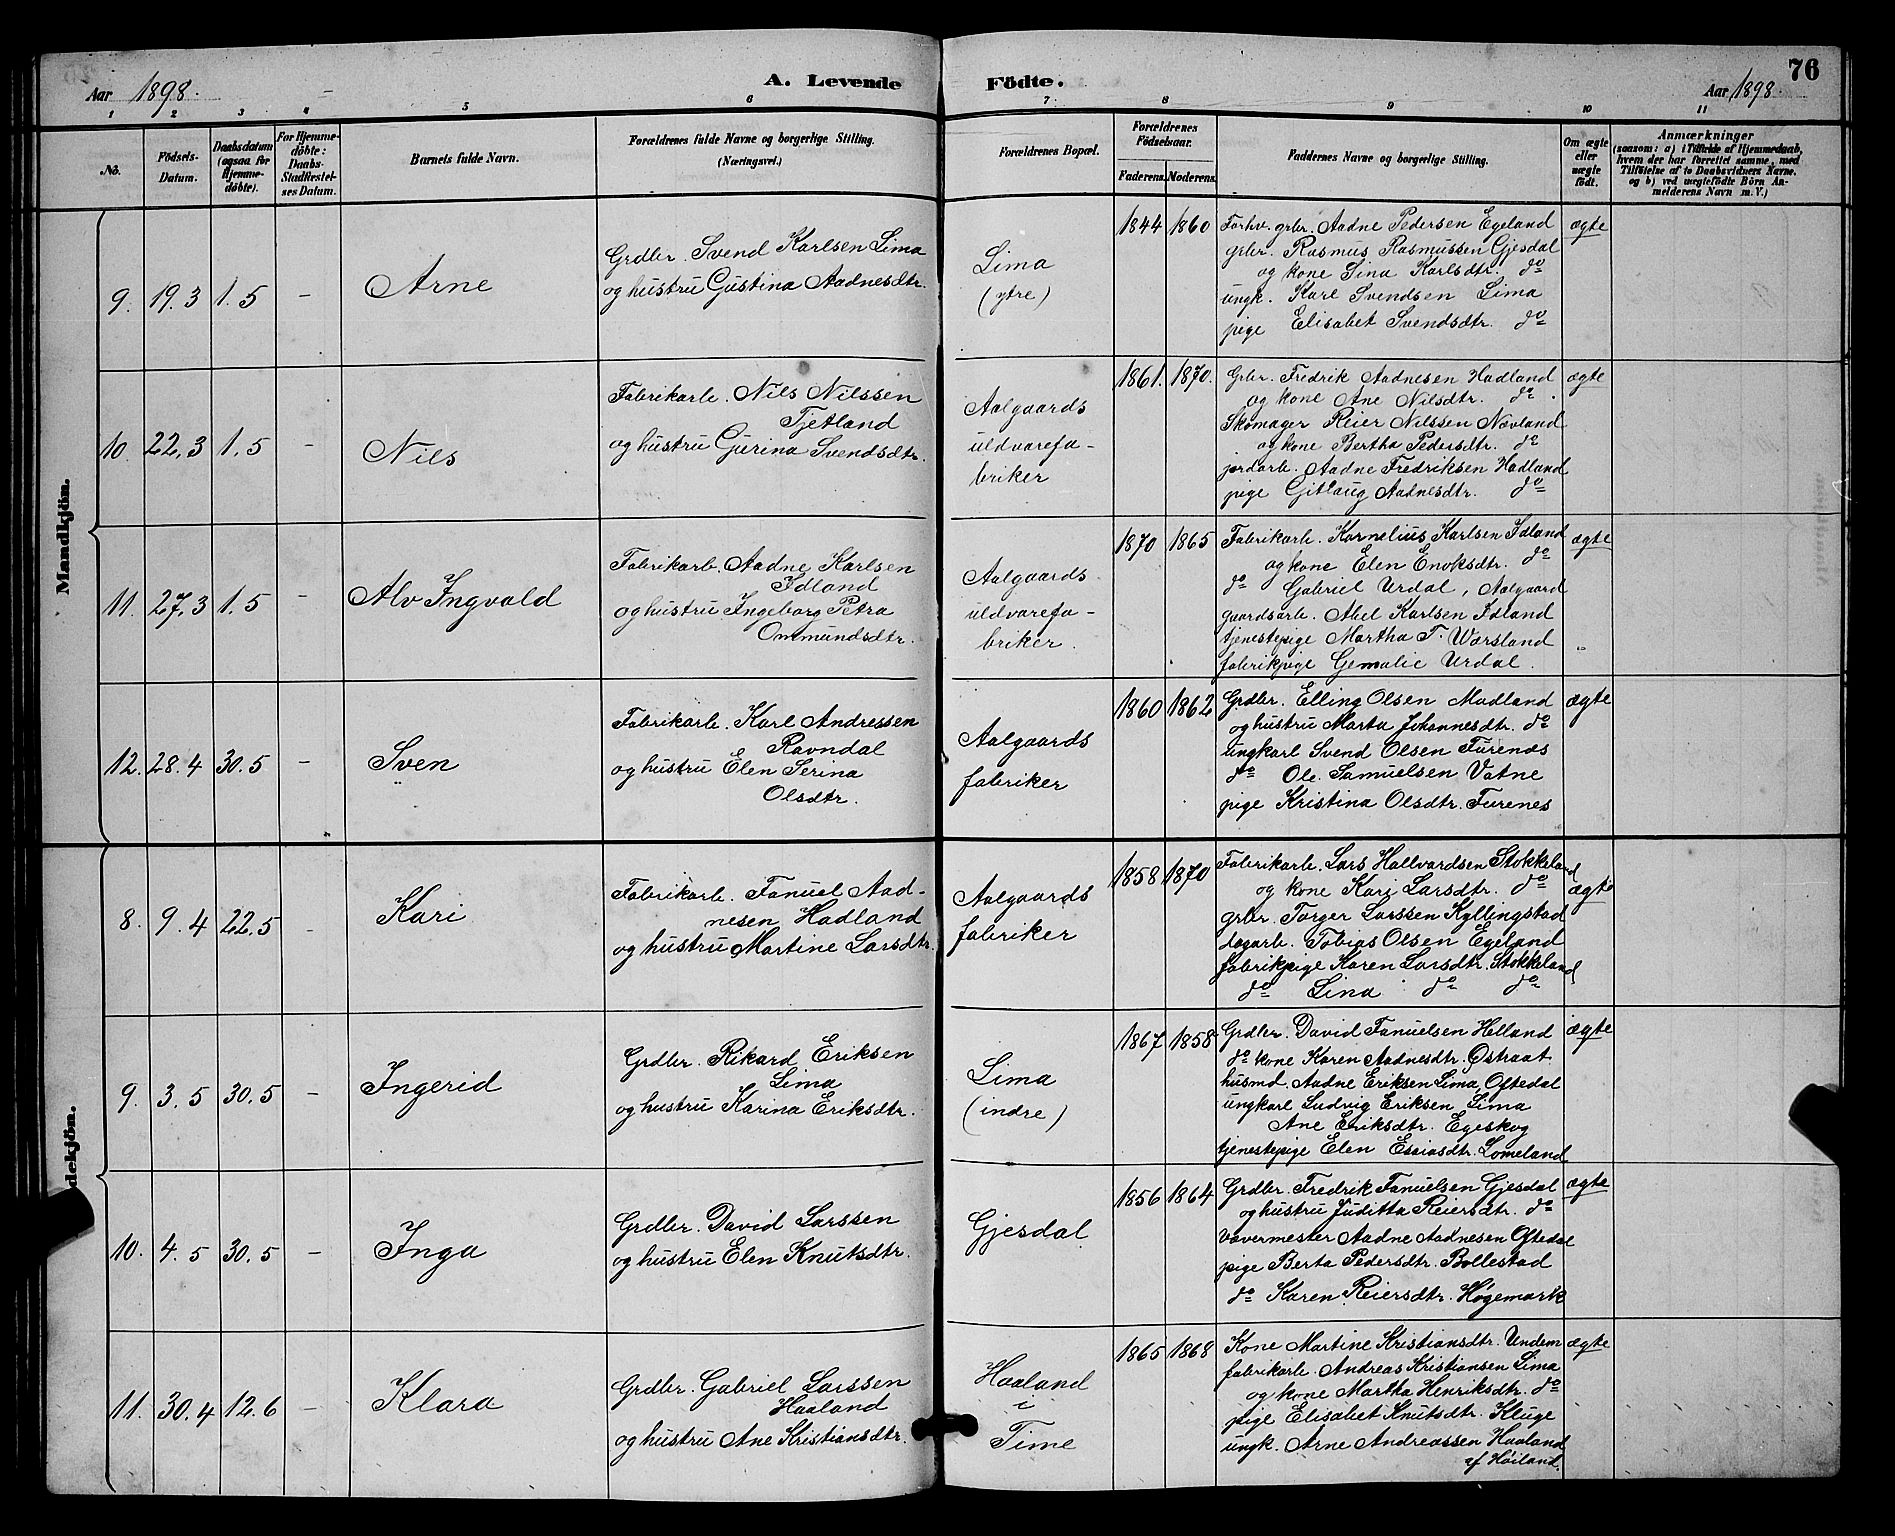 76
Aar 1898.
A. Levende
Födte.
Aar 1898.
1 2 3 4 5 6 7 8 9 10 11
No.
Födsels-
Datum.
Daabsdatum
(ogsaa for
Hjemme-
döbte).
For Hjemme-
döbte:
Daabs-
Stadfæstel-
ses Datum.
Barnets fulde Navn.
Forældrenes fulde Navne og borgerlige Stilling.
(Næringsvei.)
Forældrenes Bopæl.
Forældrenes
Födselsaar.
Faderens.
Moderens.
Faddernes Navne og borgerlige Stilling.
Om ægte
eller
uægte
födt.
Anmærkninger
(saasom: a) i Tilfælde af Hjemmedaab,
hvem der har forrettet samme, med
Tilföielse af to Daabsvidners Navne,
og b) ved uægtefödte Börn An-
melderens Navn m. V.)
Mandkjön.
9. 19.3 1.5 – Arne
Grdbr. Svend Karlsen Lima
og hustru Gustina Aadnesdtr.
Lima
(ytre)
1844 1860
Forhv. grbr. Aadne Pedersen Egeland
grbr. Rasmus Rasmussen Gjesdal
og kone Sina Karlsdtr. do
ungk. Karl Svendsen Lima
pige Elisabet Svendsdtr. do
ægte
10. 22.3 1.5 – Nils
Fabrikarb. Nils Nilssen
Tjetland
og hustru Gurina Svendsdtr.
Aalgaards
uldvarefa-
briker
1861. 1870.
Grbr. Fredrik Aadnesen Hadland
og kone Ane Nilsdtr. do
Skomager Reier Nilssen Nævland
og kone Bertha Pedersdtr. do
jordarb. Aadne Fredriksen Hadland
pige Gitlaug Aadnesdtr. do
ægte
11. 27.3 1.5 – Alv Ingvald
Fabrikarb. Aadne Karlsen
Idland
og hustru Ingeborg Petra
Ommundsdtr.
Aalgaards
uldvarefa-
briker.
1870 1865
Fabrikarb. Kornelius Karlsen Idland
og kone Elen Enoksdtr. do
do Gabriel Urdal, Aalgaard
gaardsarb. Abel Karlsen Idland
tjenestepige Martha T. Warsland
fabrikpige Gemalie Urdal.
ægte
12. 28.4 30.5 – Sven
Fabrikarb. Karl Andressen
Ravndal
og hustru Elen Serina
Olsdtr.
Aalgaards
fabriker
1860 1862
Grdbr. Elling Olsen Madland
og hustru Marta Johannesdtr. do
ungkarl Svend Olsen Furenæs
do Ole Samuelsen Vatne
pige Kristina Olsdtr. Furenes
ægte
dekjön.
8. 9.4 22.5 – Kari
Fabrikarb. Fanuel Aad-
nesen Hadland
og hustru Martine Larsdtr.
Aalgaards
fabriker
1858 1870
Fabrikarb. Lars Hallvardsen Stokkeland
og kone Kari Larsdtr. do
grbr. Torger Larssen Kyllingstad
dagarb. Tobias Olsen Egeland
fabrikpige Karen Larsdtr. Stokkeland
do Lina do do
ægte
9. 3.5 30.5 – Ingerid
Grdbr. Rikard Eriksen
Lima
og hustru Karina Eriksdtr.
Lima
(indre)
1867 1858
Grdbr. David Fanuelsen Helland
do kone Karen Aadnesdtr. Østraat
husmd. Aadne Eriksen Lima, Oftedal
ungkarl Ludvig Eriksen Lima
Ane Eriksdtr. Egeskog
tjenestepige Elen Esaiasdtr. Lomeland
ægte
10. 4.5 30.5 – Inga
Grdbr. David Larssen
og hustru Elen Knutsdtr.
Gjesdal
1856 1864
Grdbr. Fredrik Fanuelsen Gjesdal
og hustru Juditta Reiersdtr. do
vævermester Aadne Aadnesen Oftedal
pige Berta Pedersdtr. Bollestad
do Karen Reiersdtr. Høgemark
ægte
11. 30.4 12.6 – Klara
Grdbr. Gabriel Larssen
Haaland
og hustru Ane Kristiansdtr.
Haaland
i
Time
1865 1868
Kone Martine Kristiansdtr. Undem
fabrikarb. Andreas Kristiansen Lima
og kone Martha Henriksdtr. do
pige Elisabet Knutsdtr. Kluge
ungk. Arne Andreassen Haaland
af Høiland.
ægte